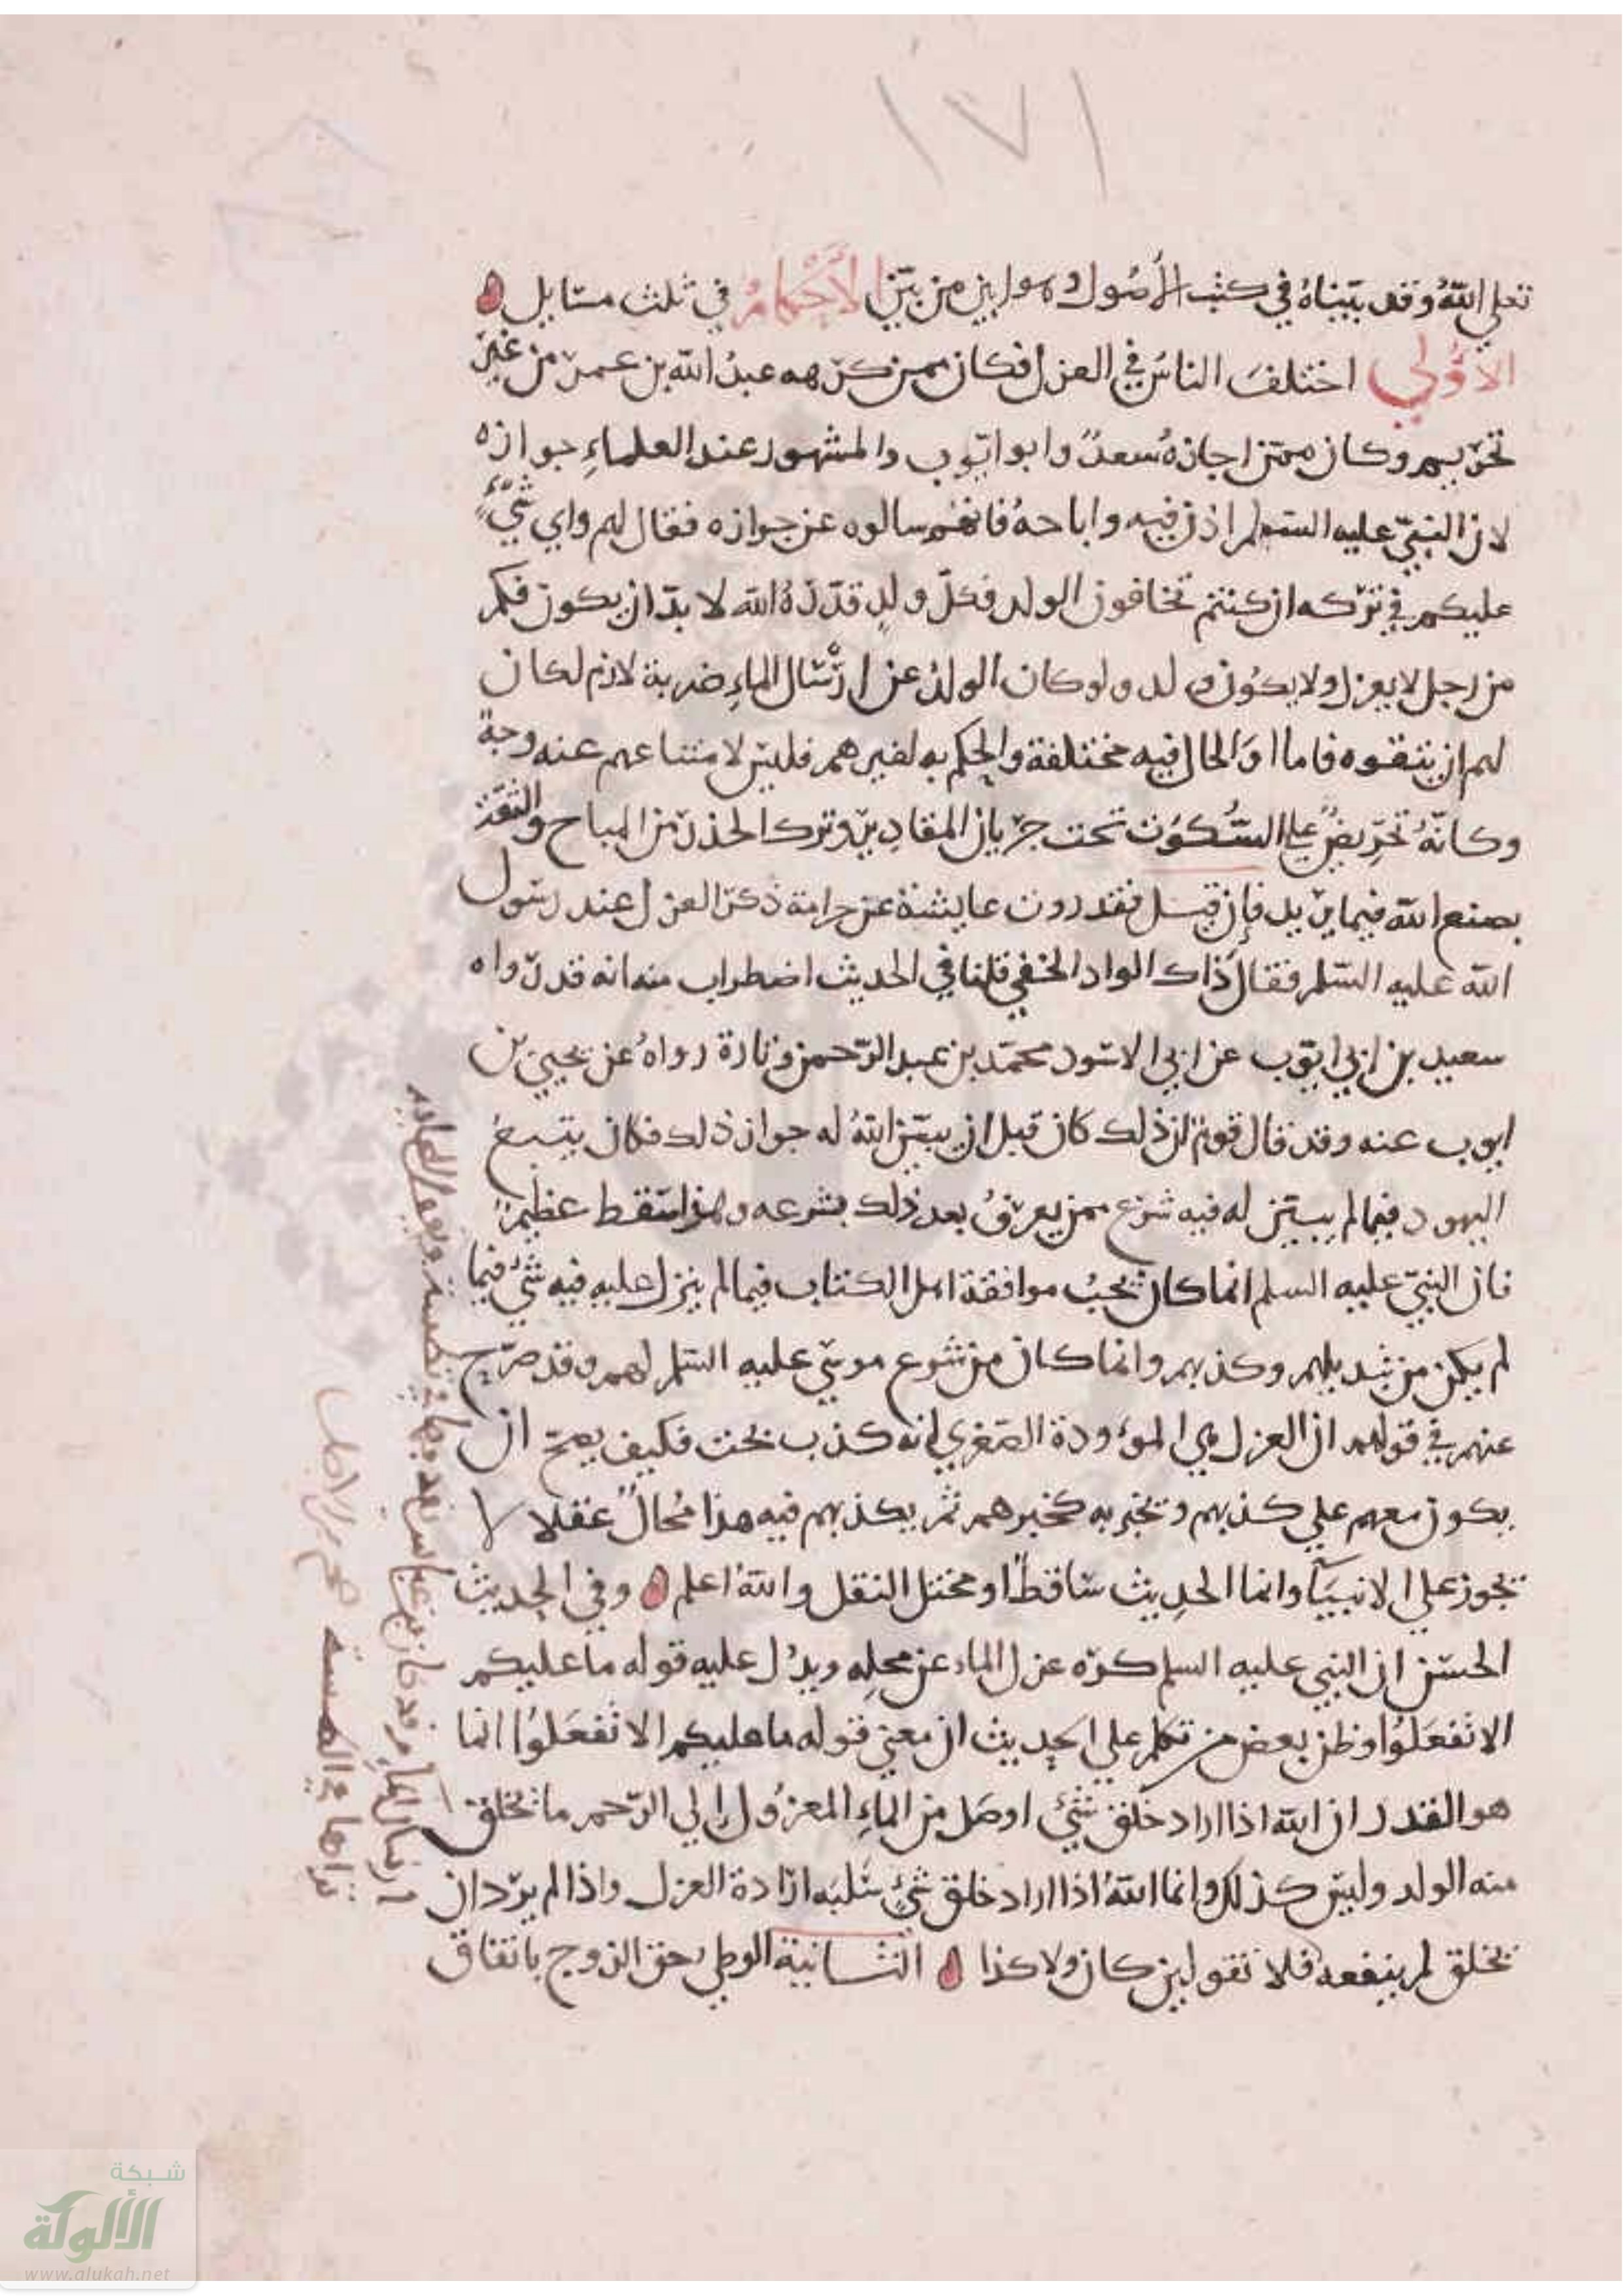 ١٧١
تعلي اللهُ وَقد بيّناهُ في كتب الأصُول وهو ابين من بيّن الأَحْكَامُ في ثلث مسَايل
الأوُلي اختلفَ الناسُ في العزل فكان ممن كرهه عبدُ الله بن عمر من غير
تحريم وكان ممّن اجازهُ سعدٌ وابو ايّوب والمشهور عند العلماءِ جوازه
لان النبيّ عليه السّلم اذن فيه واباحهُ فانهُم سالوه عن جوازه فقال لهم واي شيءٍ
عليكم في تركه ان كنتم تخافون الولد فكلّ ولدٍ قدّرهُ الله لا بدّ ان يكون فكم
من رجل لا يعزل ولا يكُون ولد ولو كان الولدُ عن ارْسَال الماءِ ضربة لازم لكان
لهم ان يتقوه فاما اوَالحال فيه مختلفة والحكم به لغيرهم فليسَ لامتناعهم عنه وجهٌ
وكانّهُ تحرِيضٌ علي السُّكوُن تحت جريان المقادِير وترك الحذر من المباح والثقة
بصنع الله فيما يريد فإن قيل فقد روت عايشة عن جدامة ذكر العزل عند رسُول
الله عليه السّلم فقالَ ذاك الواد الخفي قلنا في الحديث اضطراب منه انه قد رواه
سعيد بن ابي ايّوب عن ابي الاسود محمّد بن عبد الرّحمن وتارة رواهُ عن يحيي بن
ايوب عنه وقد قال قومٌ ان ذلك كان قبل ان يبيّن اللهُ له جواز ذلك فكان يتبعُ
اليهود فيما لم يبيّن له فيه شرع ممن يعرفُ بعد ذلك بشرعه وهذا سَقط عظيمٌ
فان النبيّ عليه السلم انما كان يحبُ موافقة اهل الكتاب فيما لم ينزل عليه فيه شيءٌ فيما
لم يكن من تبديلهم وكذبهم وانما كان من شرع موسَي عليه السّلم لهم وقد صرّح
عنهم في قولهم ان العزل هي الموءودة الصّغري انه كذب بحت فكيف يصحّ ان
يكون معهم علي كذبهم ويخبر به كخبرهم ثمّ يكذبهم فيه هذا مُحالٌ عقلا لا
يجوز علي الانبيَآ وانما الحدِيث سَاقطٌ او مختل النقل واللهُ اعلم وفي الحِديثُ
الحسَن ان النبي عليه السلم كره عزل الماء عن محلِه ويدُل عليه قوله ما عليكم
الا تَفعَلوُا وظن بعض من تكلم علي الحِديث ان معني قوله ما عليكم الا تفعَلوُا انما
هو القدر ان الله اذا اراد خلق شيءٍ اوصَل من الماءِ المعزُول إلي الرّحم ما يخلق
منه الولد وليسَ كذلك وانما اللهُ اذا اراد خلق شيءٍ سَلبَه ارَادة العزل واذا لم يرد ان
يخلق لم ينفعه فلا تقولين كان ولا كذا الثانية الوطي حق الزوج باتفاق